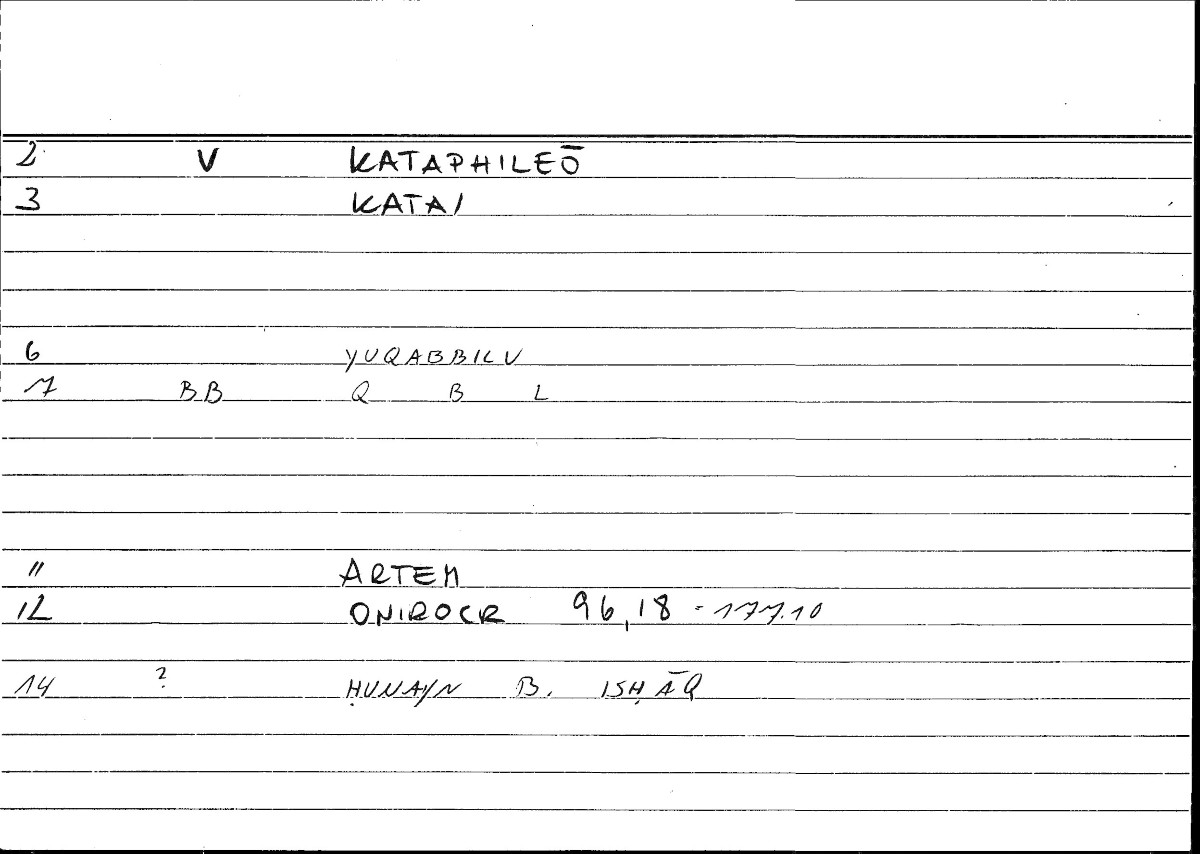 2 V KATAPHILEŌ
3 KATAI
6 YUQABBILU
7 BB Q B L
11 ARTEM
12 ONIROCR 96,18 - 177.10
14 ? ḤUNAYN B. ISḤĀQ